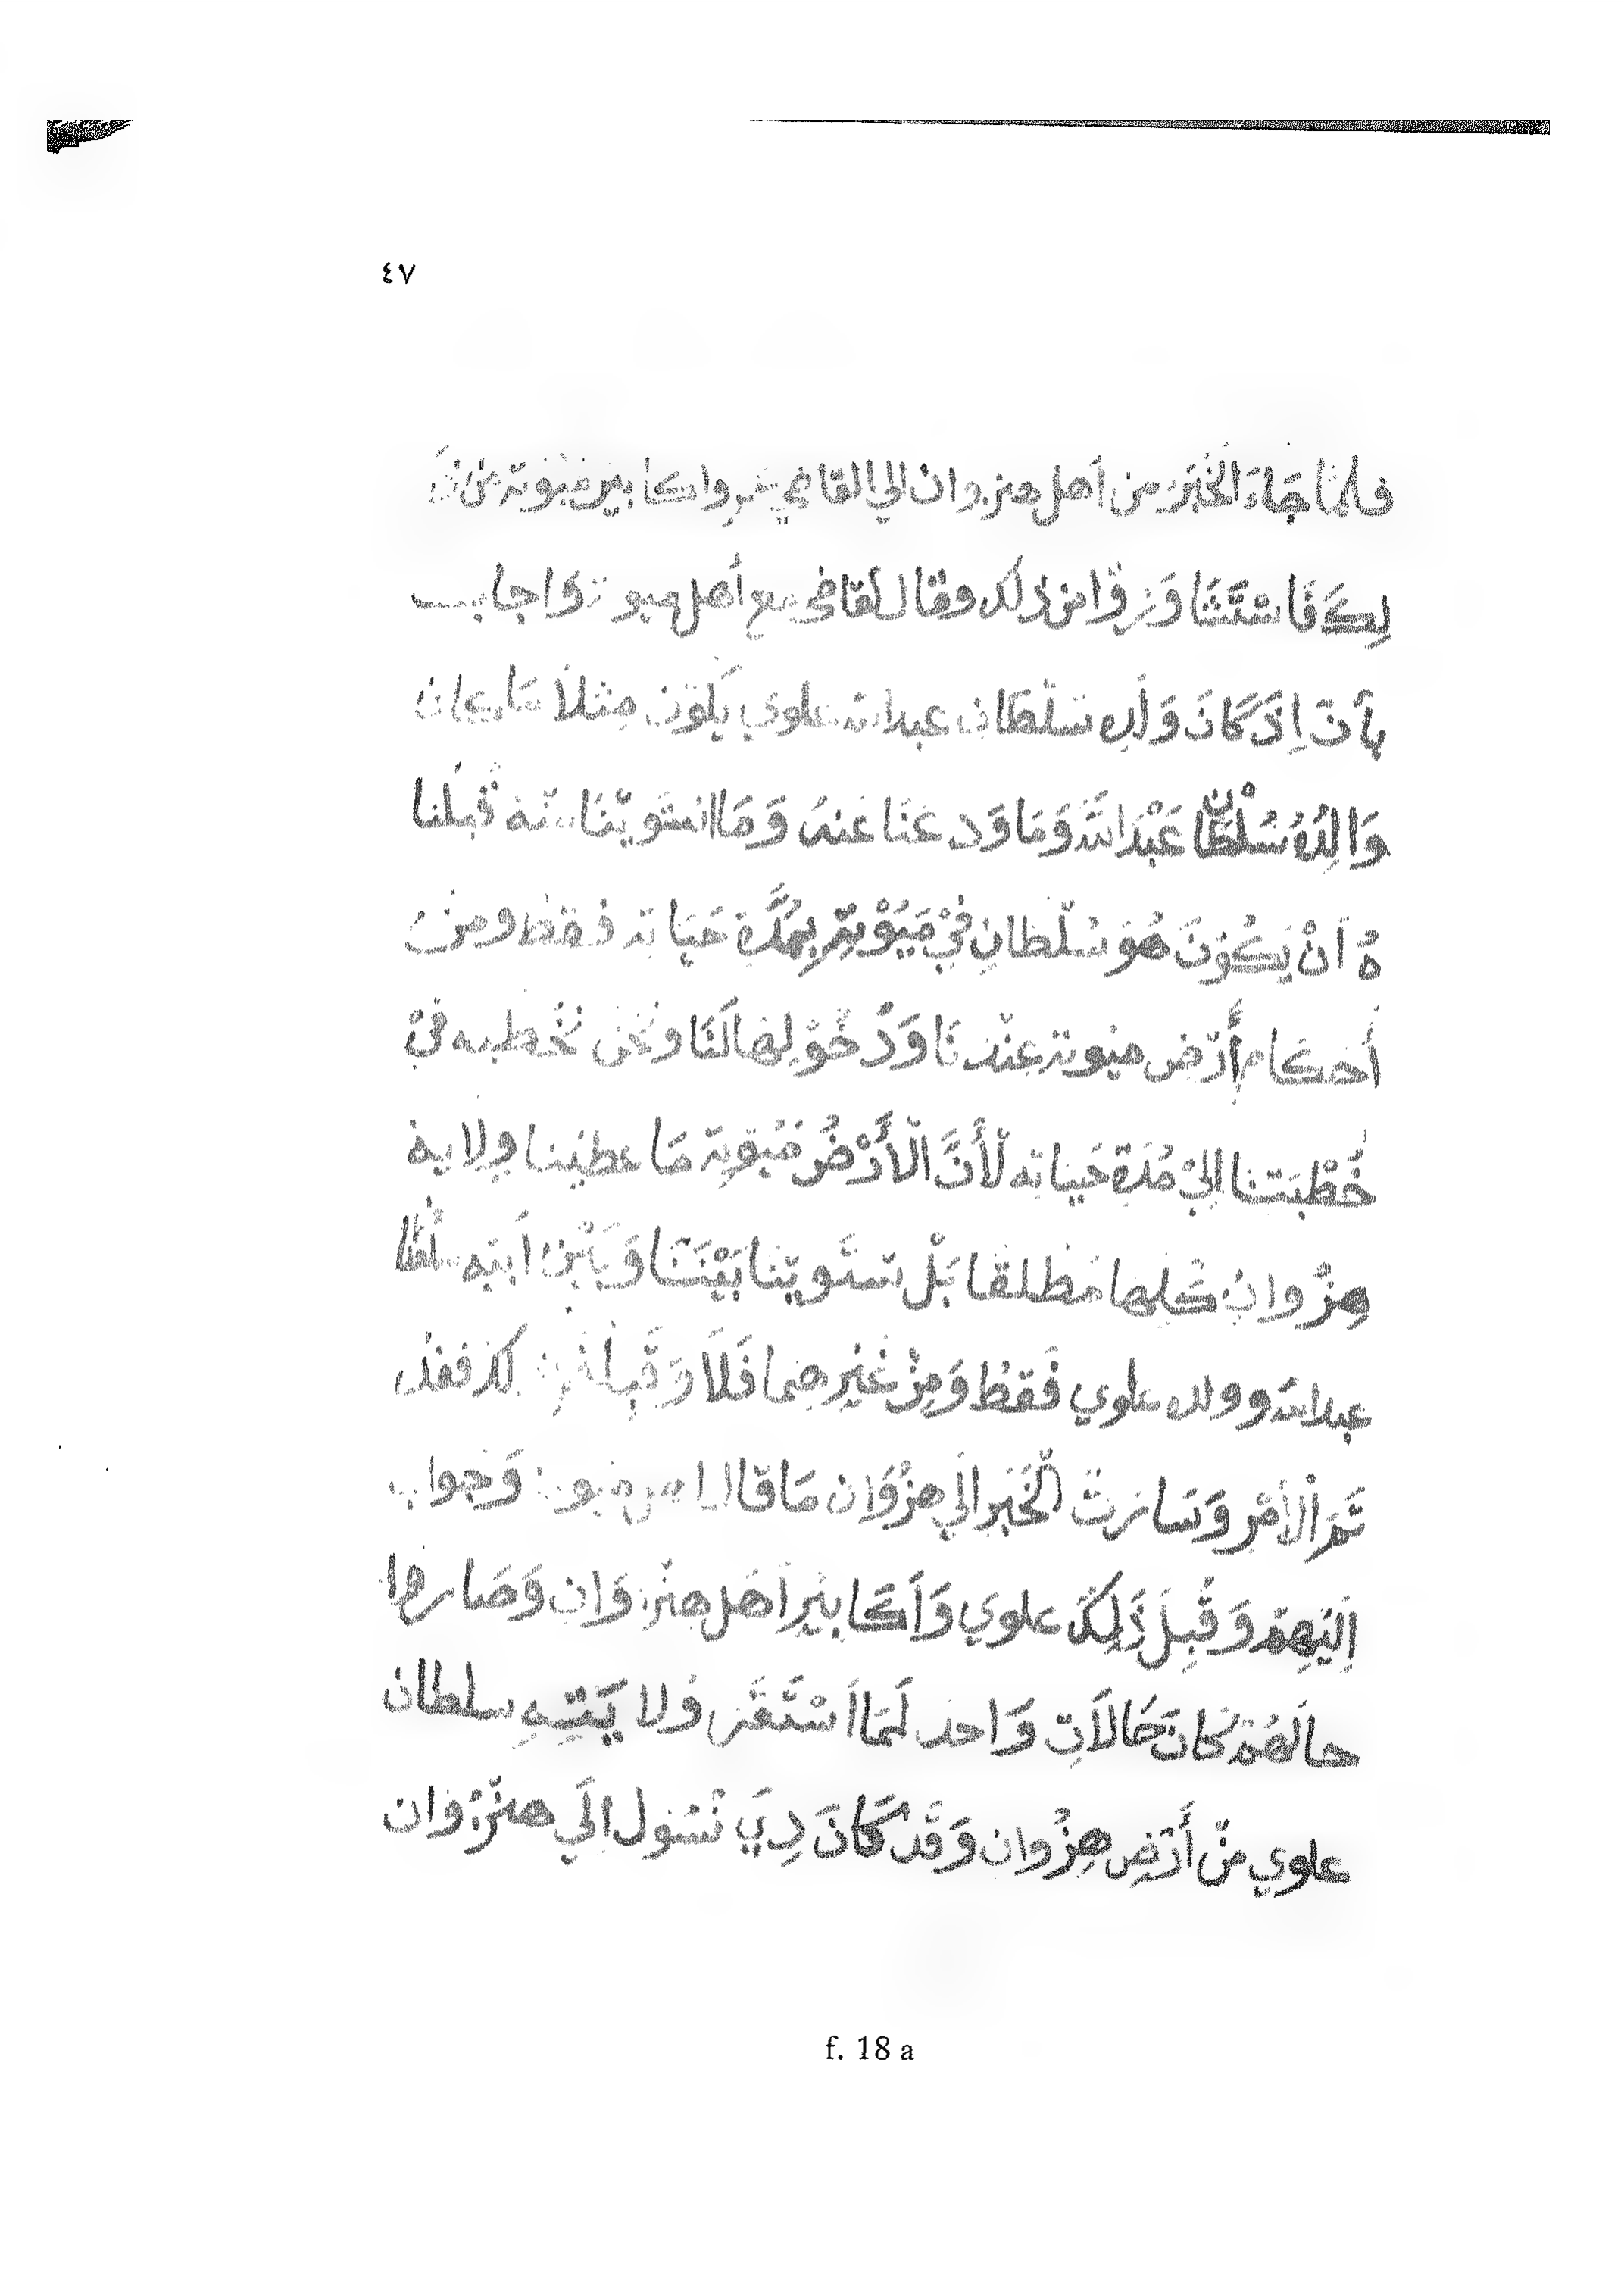 ٤٧
فلمّا جَاءَ الخَبَرُ من أهل هنزوان الي القاضي واكابير ميوتة عن ذَ
لِكَ فَاسْتَشَاوَرُوْا من ذلك وقال القاضي مع أهل ميوتة وَاجاب
بِأَنْ اِذَ كَانَ وَلَدِهِ سَلْطَان عبد الله علوي يَكُوْن مِثْلَا مَا كان
وَالِدُهُ سُلْطَانْ عَبْدَ اللَّه وَمَا وَدعنَا عَنهُ وَمَا انستَويْنَا منْهُ قَبلنا
هُ اَنْ يَكُوْنَ هُوَ سُلْطانِ فِيْ مَيُوْتِة بِمُدَّة حَيَاته فقط ومن
أَحكَام أَرْض ميوتة عِنْدنَا وَدُخُوْلِهَا لَنَا ونحْن نُخْطبه فِيْ
خُطْبَتنا اِليْ مُدَة حَيَاته لْأَنَّ الْأَرْضُ مَيُوْتِة مَا عطينا ولاية
هِزْوان كُلها مَطْلقًا بَلْ تستَويْنا بَيْنَنَا وَبَيْن اَبنه سلْطَا
عبد الله وولده علوي فَقَطْ وَمِنْ غَيْرِهِما فَلَا وَقَبِل لك فقد
تَمَّ الْأَمْر وَسَارتْ الْخَبَر اِلَي هِزْوَان مَا قَالَ اهل ميوتة وَجواب
اِلَيْهِمْ وَقَبِلَ ذَلِكَ علوي وَأَكَابِيْر أَهَل هِنْزوَان وَصَار هذا
حالَهُمْ كَانَ حَالَاتِ وَاحد لَمَا اَسْتَقَر ولا يَتيهِ سلطان
علوي منْ أَرْضِ هِزْوان وَقَدْ كَانَ دِيَ نَسُول اِلَي هنْزُوان
f. 18 a